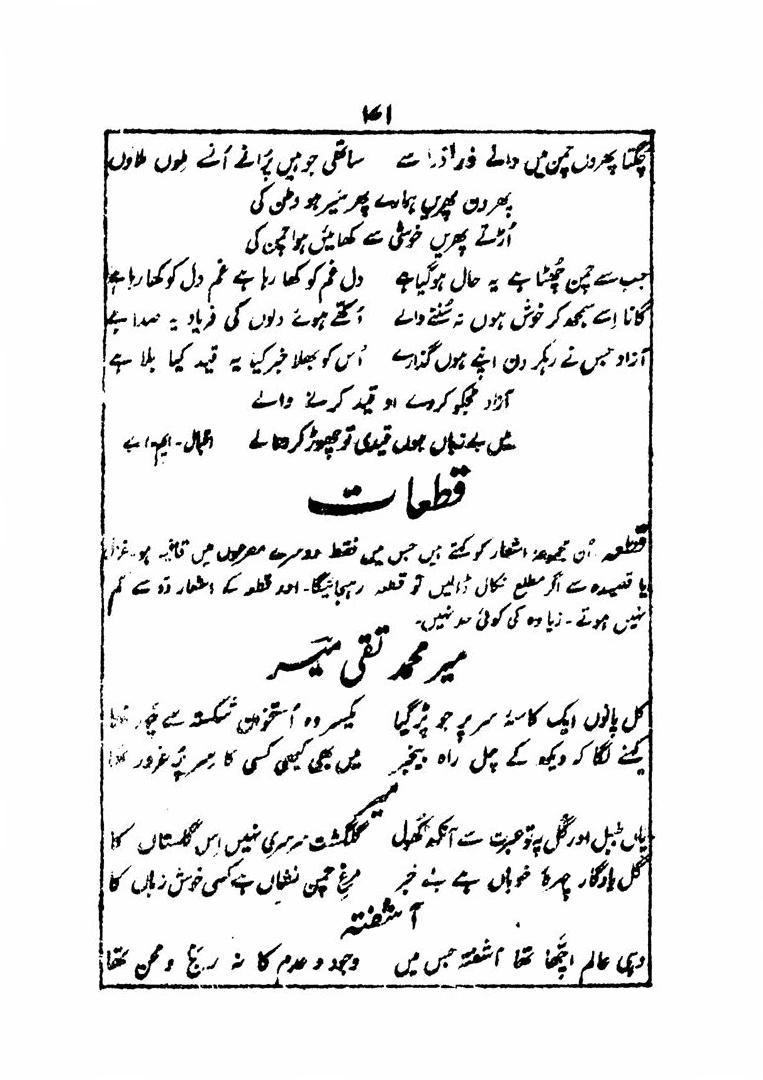 ۱۷۱
چگتا پھروں چمن میں دانے ذرا ذرا سے ساتھی جو ہیں پُرانے اُنسے ملوں ملاؤں
پھر دن پھریں ہمارے پھر سیر ہو وطن کی
اُڑتے پھریں خوشی سے کھائیں ہوا چمن کی
جب سے چمن چُھٹا ہے یہ حال ہوگیا ہے دل غم کو کھا رہا ہے غم دل کو کھا رہا ہے
گانا اِسے سمجھ کر خوش ہوں نہ سُننے والے دُکھتے ہوئے دلوں کی فریاد یہ صدا ہے
آزاد جس نے رہکر دن اپنے ہوں گذارے اُس کو بھلا خبر کیا یہ قید کیا بلا ہے
آزاد مجکو کردے او قید کرنے والے
میں بے زباں ہوں قیدی تو چھوڑ کر دعا لے اقبال - ایم - اے
قطعات
قطعہ اُن مجموعۂ اشعار کو کہتے ہیں جس میں فقط دوسرے مصرعوں میں قافیہ ہو۔ غزل
یا قصیدہ سے اگر مطلع نکال ڈالیں تو قطعہ رہجائیگا۔ اور قطعہ کے اشعار دو سے کم
نہیں ہوتے۔ زیادہ کی کوئی حد نہیں۔
میر محمد تقی میر
کل پانوں ایک کاسۂ سر پر جو پڑ گیا یکسر وہ اُستخوان شکستہ سے چور تھا
کہنے لگا کہ دیکھ کے چل راہ بیخبر میں بھی کبھی کسی کا سرِ پُر غرور تھا
میر
یاں بلبل اور گُل پہ تو عبرت سے آنکھ کھول گلگشت سرسری نہیں اِس گلستاں کا
گل یادگار چہرۂ خوباں ہے بے خبر مرغِ چمن نشاں ہے کسی خوش زباں کا
آشفتہ
وہی عالم اچھا تھا آشفتہ جس میں وجود و عدم کا نہ رنج و محن تھا